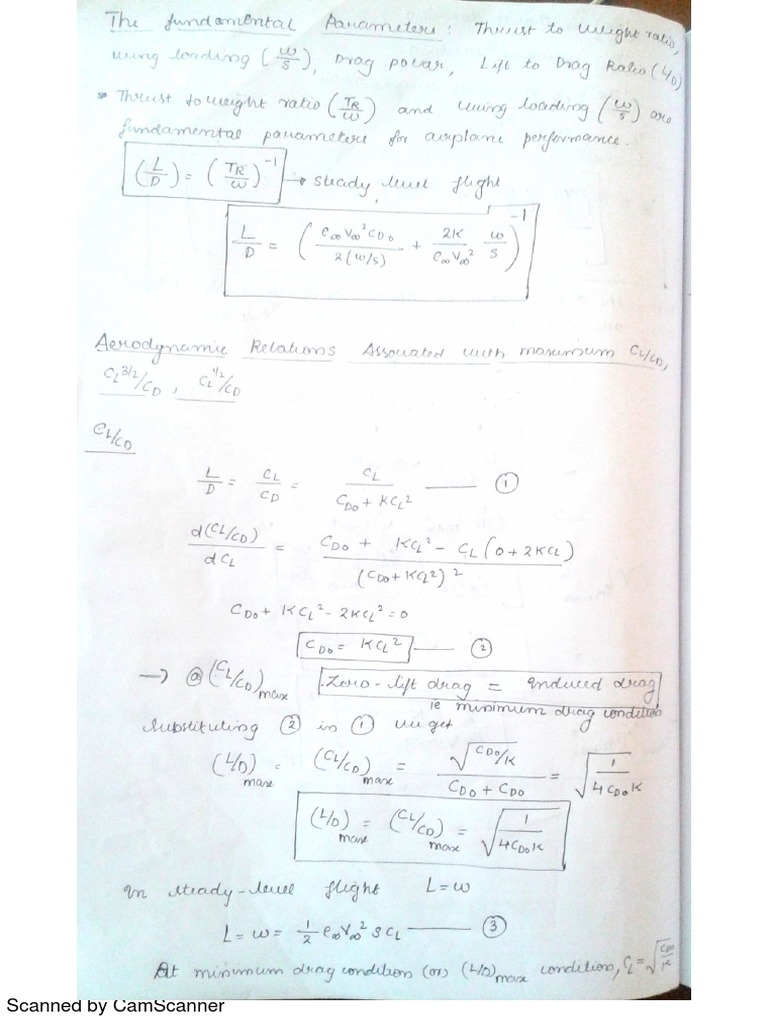 The fundamental Parameters: Thrust to Weight ratio,
wing loading (W/S), Drag polar, Lift to Drag Ratio (L/D)
* Thrust to weight ratio (TR/W) and wing loading (W/S) are
fundamental parameters for airplane performance.
(L/D) = (TR/W)^-1 → steady level flight
L/D = (ρ∞ V∞² CD0 / 2(W/S) + 2K / ρ∞ V∞² W/S)^-1
Aerodynamic Relations Associated with maximum CL/CD,
CL^3/2/CD, CL^1/2/CD
CL/CD
L/D = CL/CD = CL / (CD0 + KCL²) —— ①
d(CL/CD)/dCL = (CD0 + KCL² - CL(0 + 2KCL)) / (CD0 + KCL²)²
CD0 + KCL² - 2KCL² = 0
CD0 = KCL² —— ②
→ @ (CL/CD)max Zero-lift drag = Induced drag
ie minimum drag condition
Substituting ② in ① we get
(L/D)max = (CL/CD)max = √(CD0/K) / (CD0 + CD0) = √(1/4CD0K)
(L/D)max = (CL/CD)max = √(1/4CD0K)
In steady-level flight L = W
L = W = 1/2 ρ∞ V∞² S CL —— ③
At minimum drag condition (or) (L/D)max condition, CL = √(CD0/K)
Scanned by CamScanner